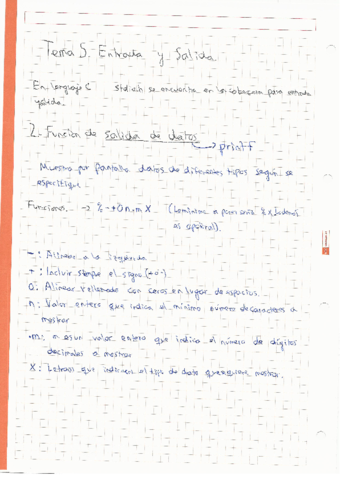 Tema 5. Entrada y Salida
En lenguaje C std.ioh se encuentra en la cabecera para entrada
y salida.
2. Función de salida de datos
→ printf
Muestra por pantalla datos de diferentes tipos según se
especifique
Funciones. → % -+0n.mX (Comienza a para
es opcional).
- : Alinear a la Izquierda
+ : Incluir siempre el signo (+ o -).
0: Alinear rellenado con ceros en lugar de espacios.
n: Valor entero que indica el mínimo número de caracteres a
mostrar
.m: m es un valor entero que indica el número de dígitos
decimales a mostrar
X: Letras que indican el tipo de dato que quiere mostrar.